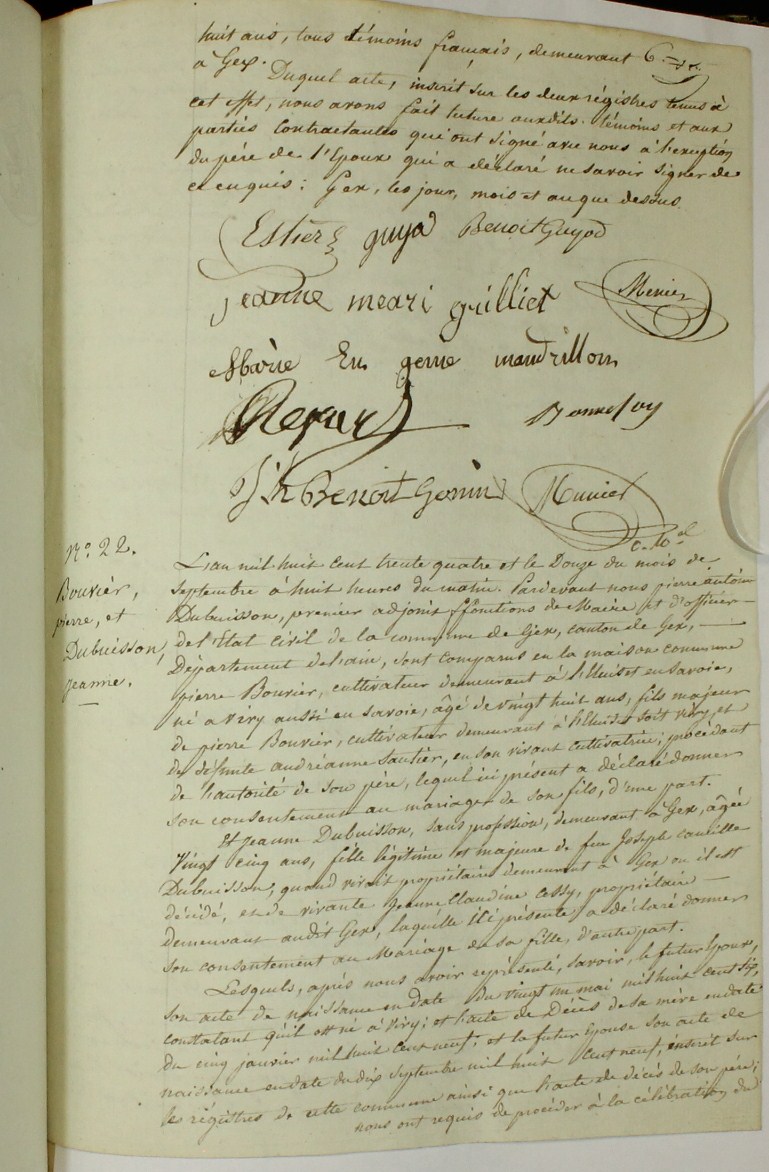 huit ans, tous témoins français, demeurant
à Gex. Duquel acte, inscrit sur les deux régistres tenus à
cet effet, nous avons fait lecture auxdits témoins et aux
parties contractantes qui ont signé avec nous à l'exception
du père de l'Epoux qui a déclaré ne savoir signer de
ce enquis: Gex, les jour, mois et an que dessus.
Estier guyod Benoit Guyod
jeanne meari guilliet Menier
Marie Eugenie mandrillon
Bonnefoy
Jh Benoit Gonin Munier
N.º 22.
Bouvier,
pierre, et
Dubuisson,
jeanne.
L'an mil huit cent trente quatre et le Douze du mois de
Septembre à huit heures du matin. Pardevant nous pierre antoine
Dubuisson, premier adjoint ffonctions de Maire et d'officier
de l'Etat civil de la commune de Gex, canton de Gex,
Département de l'ain, sont comparus en la maison commune
pierre Bouvier, cultivateur demeurant à en Savoie,
né à Viry aussi en Savoie, âgé de vingt huit ans, fils majeur
de pierre Bouvier, cultivateur demeurant à soit Viry, et
de défunte andréanne Sautier, en son vivant cultivatrice; procédant
de l'autorité de son père, lequel ici présent a déclaré donner
son consentement au mariage de son fils, d'une part.
Et jeanne Dubuisson, sans profession, demeurant à Gex, âgée
vingt cinq ans, fille légitime et majeure de feu Joseph camille
Dubuisson, quand vivait propriétaire demeurant à Gex où il est
décidé, et de vivante jeanne Claudine Cessy, propriétaire
demeurant audit Gex, laquelle ici présente a déclaré donner
son consentement au Mariage de sa fille, d'autre part.
Lesquels, après nous avoir représenté, savoir, le futur Epoux,
son acte de naissance en date du vingt un mai mil huit cent six,
constatant qu'il est né à Viry; et l'acte de Décès de sa mère en date
du cinq janvier mil huit cent neuf; et la future Epouse son acte de
naissance en date du dix septembre mil huit cent neuf, inscrit sur
les régistres de cette commune ainsi que l'acte de décès de son père;
nous ont requis de procéder à la célébration du